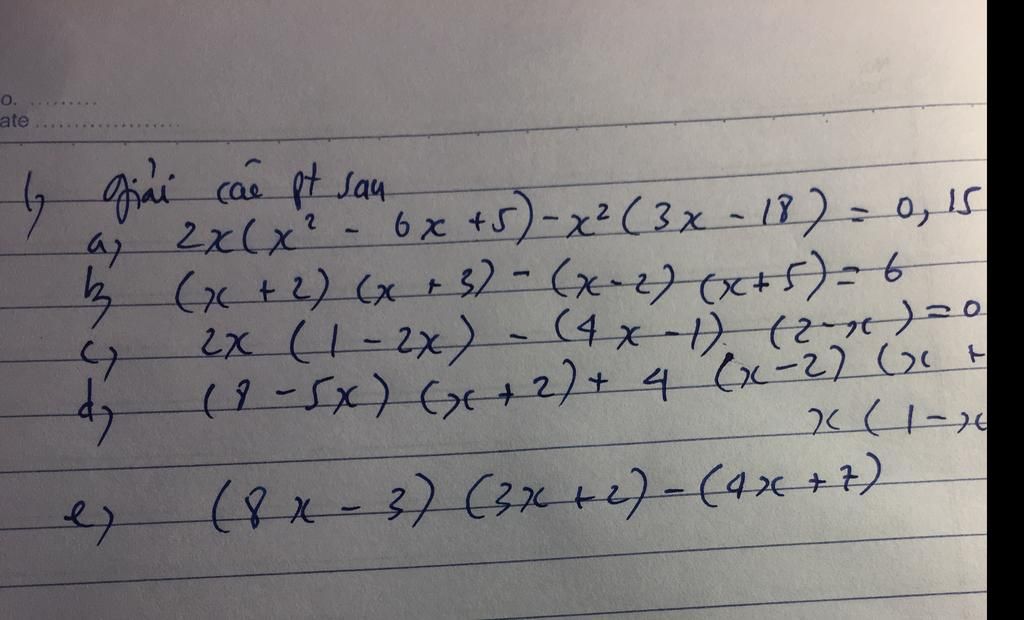 o. .........
ate ..................
1, Giải các pt sau
a, 2x(x² - 6x +5) - x² (3x - 18) = 0,15
b, (x + 2) (x + 3) - (x - 2) (x + 5) = 6
c, 2x (1 - 2x) - (4x - 1) (2 - x) = 0
d, (8 - 5x) (x + 2) + 4 (x - 2) (x +
x (1 - x
e, (8x - 3) (3x + 2) - (4x + 7)